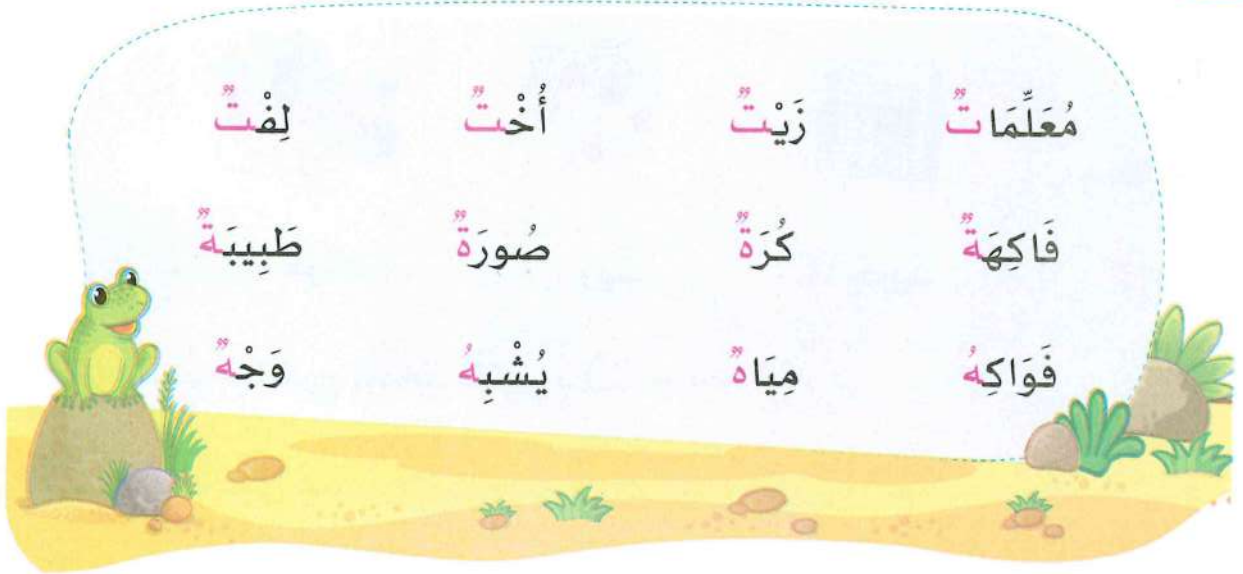 مُعَلِّمَاتٌ زَيْتٌ أُخْتٌ لِفْتٌ
فَاكِهَةٌ كُرَةٌ صُورَةٌ طَبِيبَةٌ
فَوَاكِهُ مِيَاهٌ يُشْبِهُ وَجْهٌ